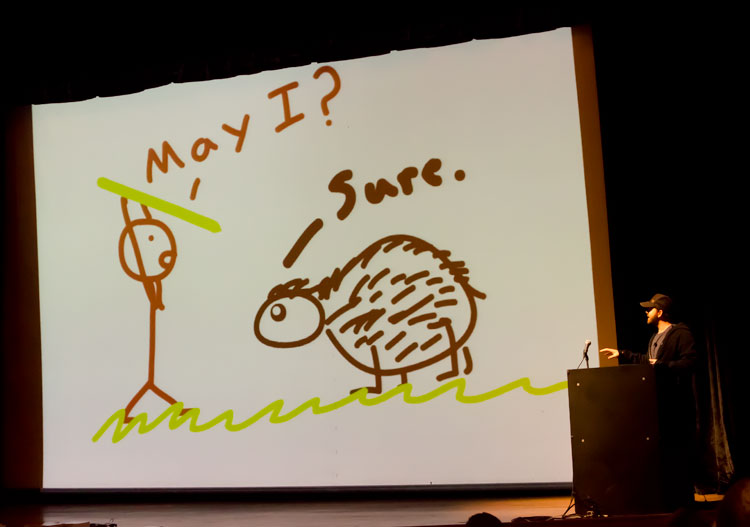 May I?
Sure.